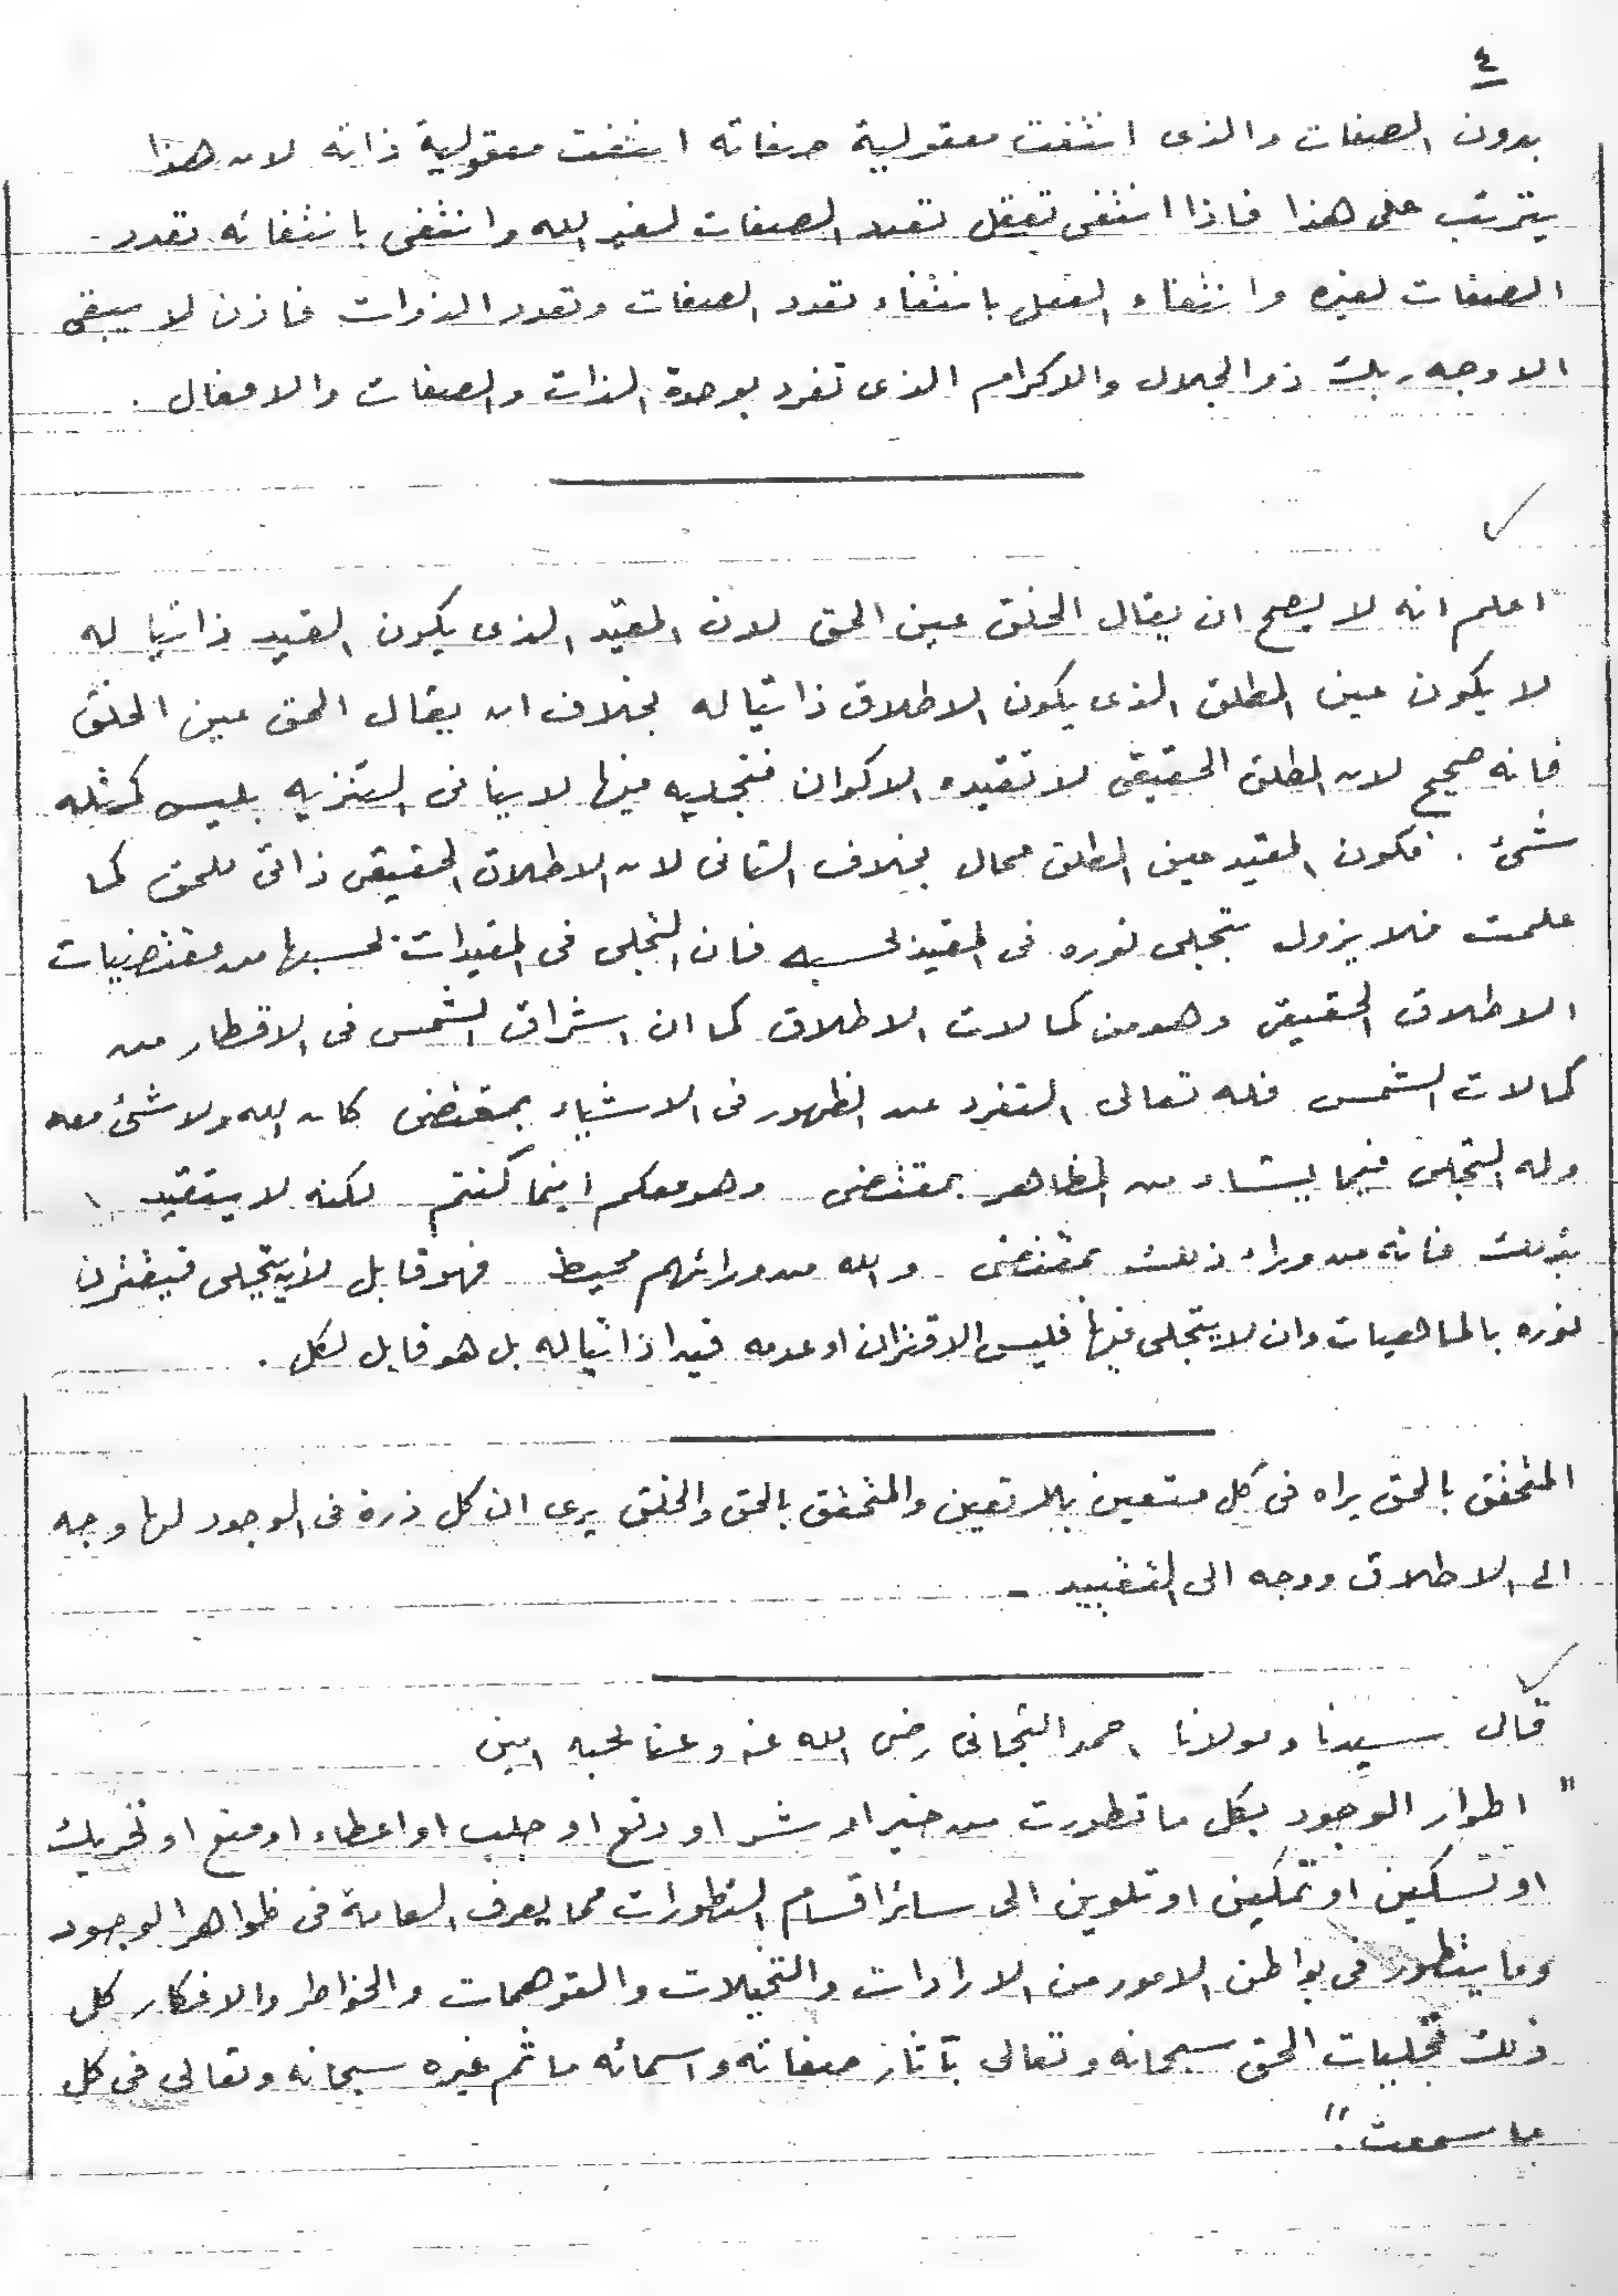 ٤
بدون الصفات والذى انتفت معقولية صفاته انتفت معقولية ذاته لان هذا
يترتب على هذا فاذا انتفى تعقل تعدد الصفات لغير الله وانتفى بانتفائه تعدد
الصفات لغيره وانتفاء الفعل بانتفاء تعدد الصفات وتعدد الذوات فاذن لا يبقى
الا وجه ربك ذو الجلال والاكرام الذى تفرد بوحدة الذات والصفات والافعال .
"اعلم انه لا يصح ان يقال الخلق عين الحق لان المقيد الذى يكون القيد ذاتيا له
لا يكون عين المطلق الذى يكون الاطلاق ذاتيا له بخلاف ان يقال الحق عين الخلق
فانه صحيح لان المطلق الحقيقى لا تقيده الاكوان فتجليه فيها لا ينافى التنزيه بليس كمثله
شئ . فكون المقيد عين المطلق محال بخلاف الثانى لان الاطلاق الحقيقى ذاتى للحق كما
علمت فلا يزول بتجلى نوره فى المقيد بحسبه فان التجلى فى المقيدات بحسبها من مقتضيات
الاطلاق الحقيقى وهو من كمالات الاطلاق كما ان اشراق الشمس فى الاقطار من
كمالات الشمس فله تعالى التفرد عند الظهور فى الاشياء بمقتضى كان الله ولا شئ معه
وله التجلى فيما يشاء من المظاهر بمقتضى وهو معكم اينما كنتم لكنه لا يتقيد
بذلك فانه من وراء ذلك بمقتضى والله من ورائهم محيط فهو قابل لان يتجلى فيقترن
نوره بالماهيات وان لا يتجلى فيها فليس الاقتران او عدمه قيدا ذاتيا له بل هو قابل لكل .
المتحقق بالحق يراه فى كل متعين بلا تعين والمتحقق بالحق والخلق يرى ان كل ذرة فى الوجود لها وجه
الى الاطلاق ووجه الى التقييد -
قال سيدنا ومولانا احمد التجانى رضى الله عنه وعنا بحبه امين
" اطوار الوجود بكل ما تطورت من خير او شر او دفع او جلب او اعطاء او منع او تحريك
او تسكين او تمكين او تلوين الى سائر اقسام التطورات مما يعرف العامة فى ظواهر الوجود
وما يتطور فى بواطن الامور من الارادات والتخيلات والتوهمات والخواطر والافكار كل
ذلك تجليات الحق سبحانه وتعالى بآثار صفاته واسمائه ما ثم غيره سبحانه وتعالى فى كل
ما سمعت . "